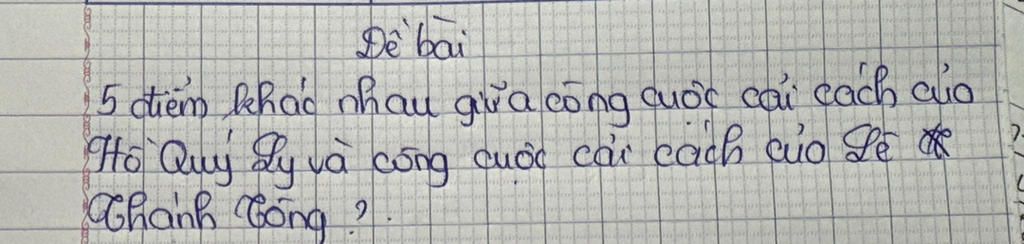 Đề bài
5 điểm khác nhau giữa công cuộc cải cách của
Hồ Quý Ly và công cuộc cải cách của Lê
Thánh Tông ?.